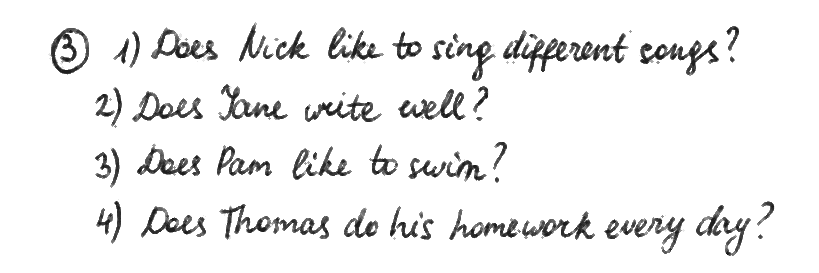 ③ 1) Does Nick like to sing different songs?
2) Does Jane write well?
3) Does Pam like to swim?
4) Does Thomas do his homework every day?